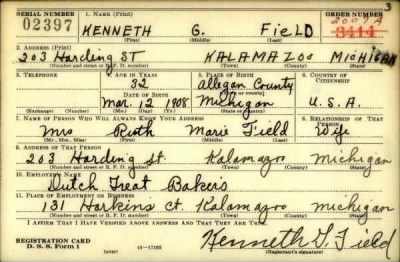 3
SERIAL NUMBER 1. NAME (Print) ORDER NUMBER
02397 KENNETH G. FIELD 3414
(First) (Middle) (Last)
2. ADDRESS (Print)
203 Harding ST KALAMAZOO MICHIGAN
(Number and street or R. F. D. number) (Town) (County) (State)
3. TELEPHONE 4. AGE IN YEARS 5. PLACE OF BIRTH 6. COUNTRY OF CITIZENSHIP
32 Allegan County
DATE OF BIRTH (Town or county)
Mar. 12 1908 Michigan U.S.A.
(Exchange) (Number) (Mo.) (Day) (Yr.) (State or country)
7. NAME OF PERSON WHO WILL ALWAYS KNOW YOUR ADDRESS 8. RELATIONSHIP OF THAT PERSON
Mrs Ruth Marie Field Wife
(Mr., Mrs., Miss) (First) (Middle) (Last)
9. ADDRESS OF THAT PERSON
203 Harding St. Kalamazoo Michigan
(Number and street or R. F. D. number) (Town) (County) (State)
10. EMPLOYER'S NAME
Dutch Treat Bakers
11. PLACE OF EMPLOYMENT OR BUSINESS
131 Harkins Ct. Kalamazoo Michigan
(Number and street or R. F. D. number) (Town) (County) (State)
I AFFIRM THAT I HAVE VERIFIED ABOVE ANSWERS AND THAT THEY ARE TRUE.
REGISTRATION CARD
D. S. S. Form 1 16—17105 Kenneth G. Field
(Registrant's signature)